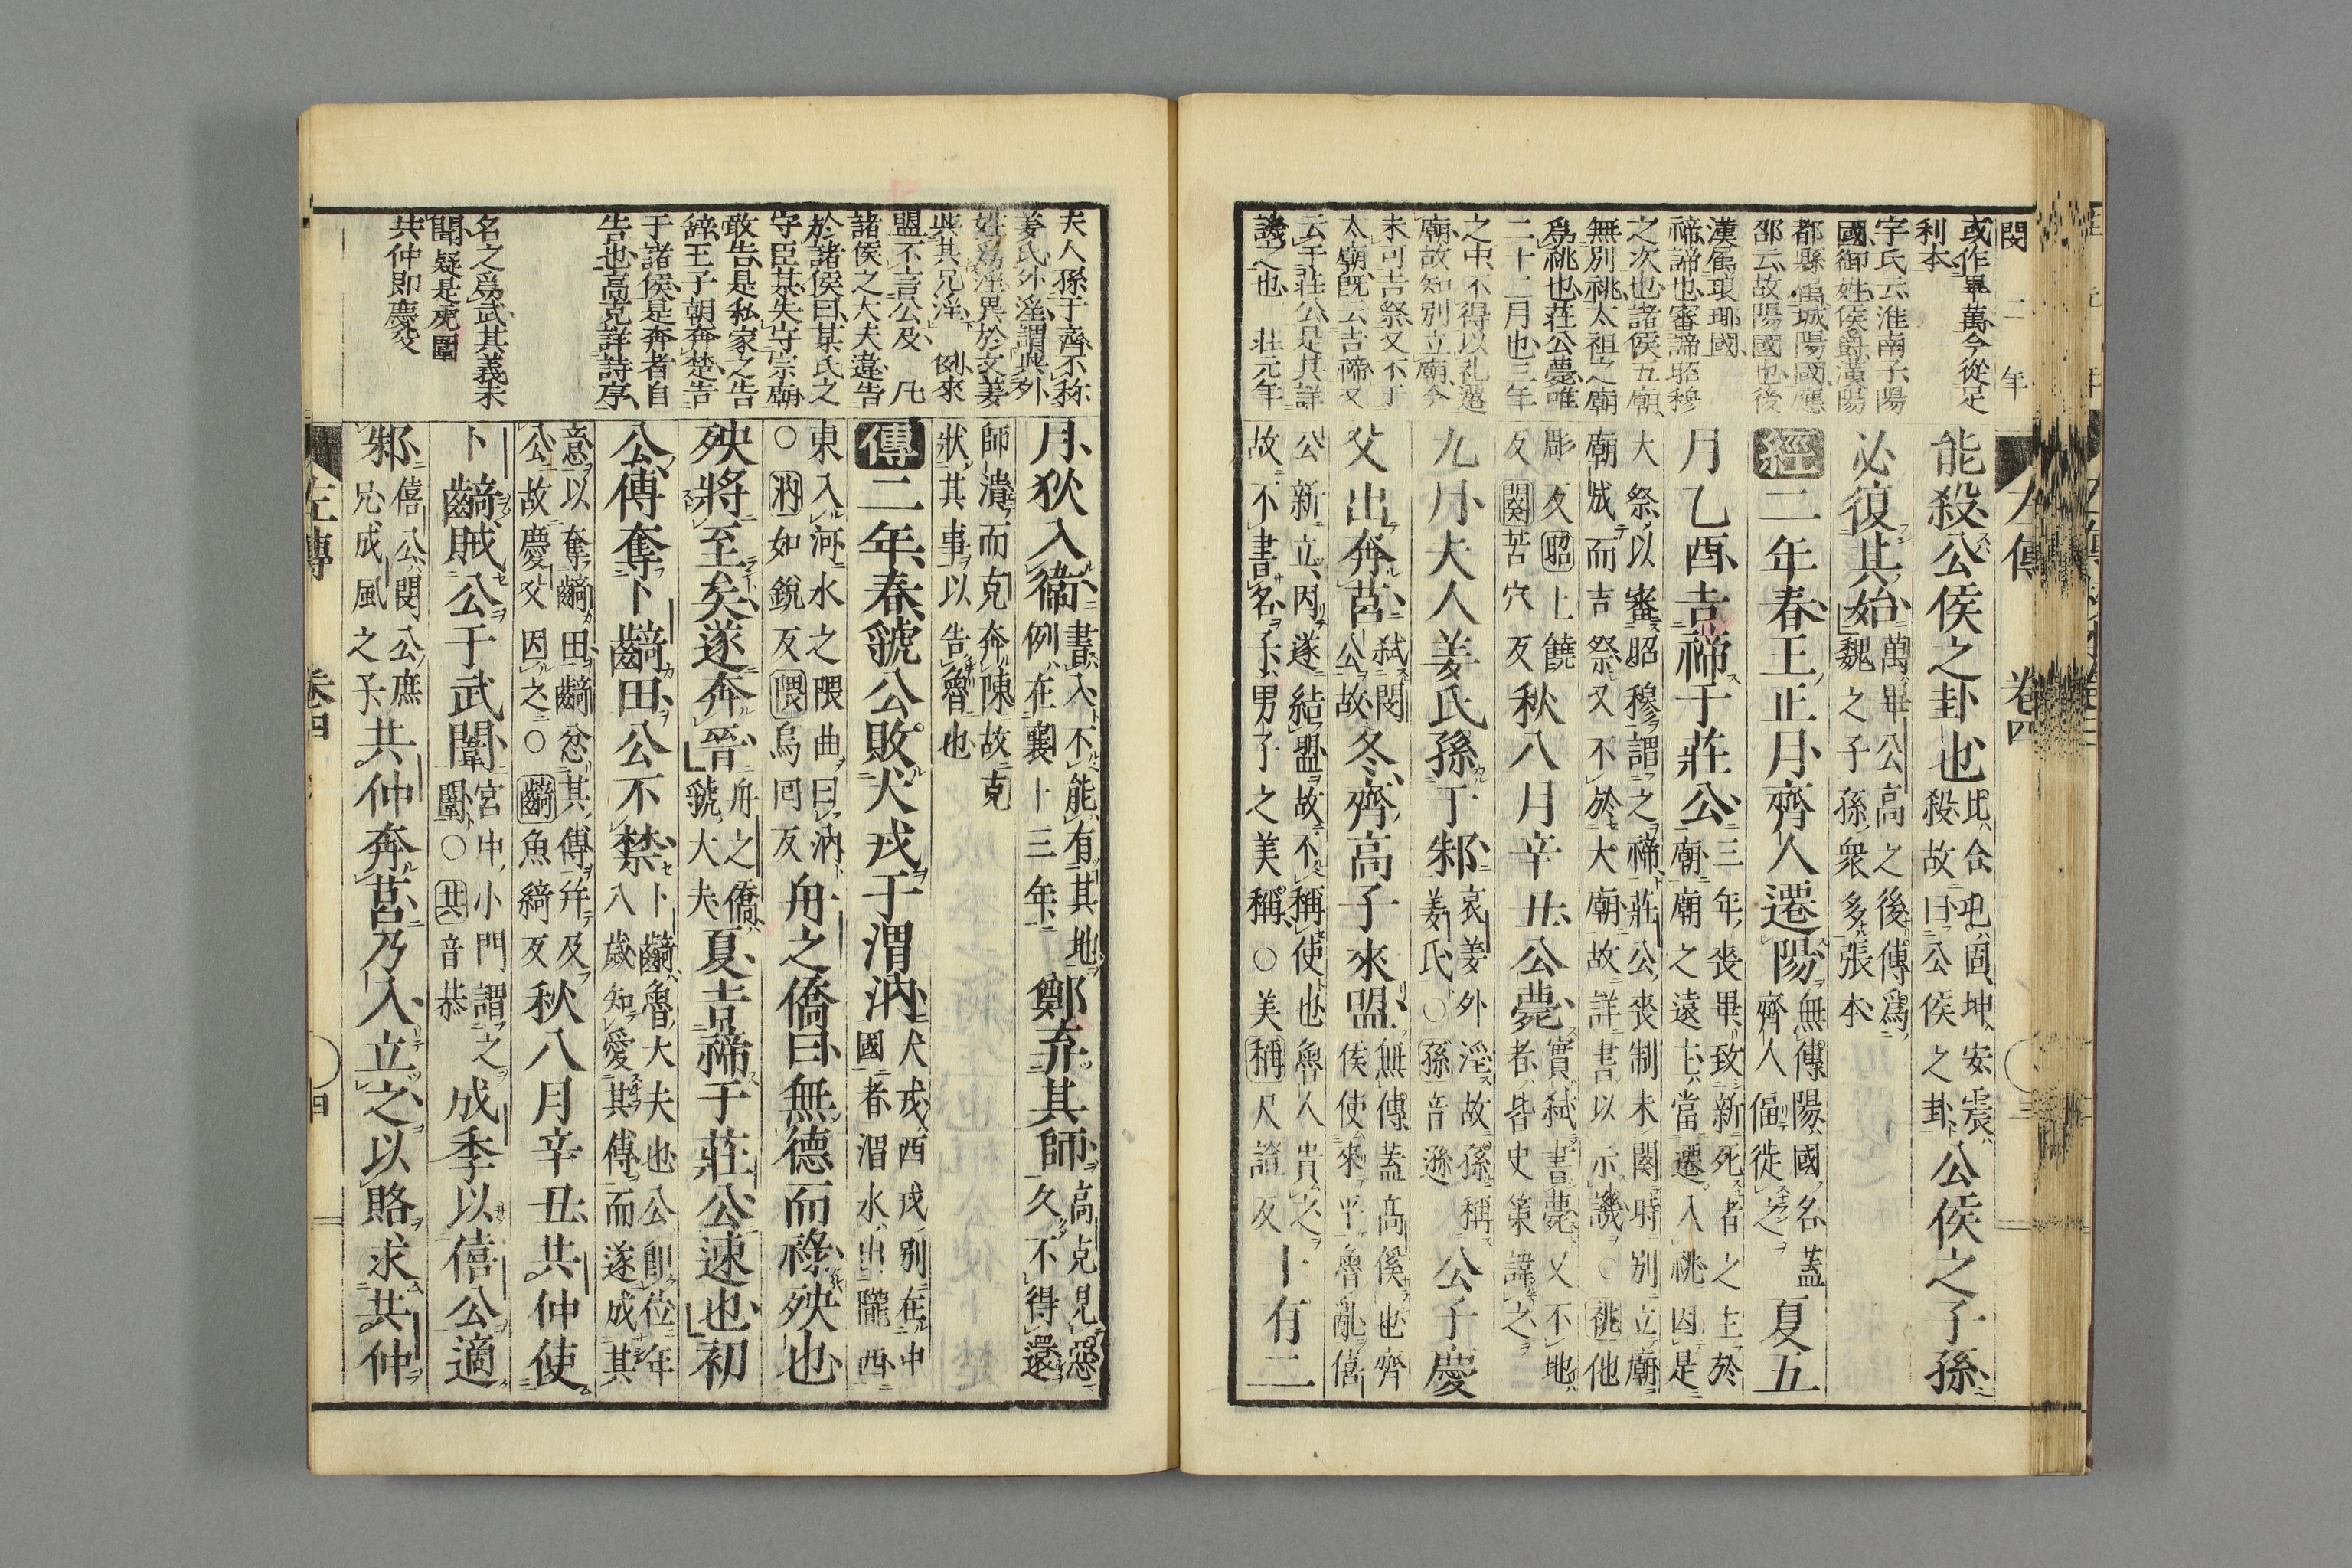 閔 二年
或作畢萬今從足
利本
字氏云淮南子陽
國御姓侯爵漢陽
都縣屬城陽國應
邵云故陽國也後
漢屬琅琊國
禘諦也審諦昭穆
之次也諸侯五廟
無別祧太祖之廟
爲祧也莊公薨唯
二十二月也三年
之中不得以礼遷
廟故知別立廟今
未可吉祭又不于
太廟既云吉禘又
云于莊公是其詳
譏之也 莊元年
左傳 卷四
能殺公侯之卦也比合屯固坤安震殺故曰公侯之卦公侯之子孫
必復其始萬畢公高之後傳爲魏之子孫衆多張本
經二年春王正月齊人遷陽無傳陽國名蓋齊人偪徙之夏五
月乙酉吉禘于莊公三年喪畢致新死者之主於廟廟之遠主當遷入祧因是
大祭以審昭穆謂之禘莊公喪制未闋時別立廟廟成而吉祭又不於大廟故詳書以示譏○祧他
彫反昭上饒反闋苦穴反秋八月辛丑公薨實弒書薨又不地者皆史策諱之
九月夫人姜氏孫于邾哀姜外淫故孫稱姜氏○孫音遜公子慶
父出奔莒弑閔公故冬齊高子來盟無傳蓋高傒也齊侯使來平魯亂僖
公新立因遂結盟故不稱使也魯人貴之故不書名子男子之美稱○美稱尺證反十有二
夫人孫于齊不称
姜氏外淫謂與外
姓爲淫異於文姜
與其兄淫 例來
盟不言公及 凡
諸侯之大夫違告
於諸侯曰某氏之
守臣某失守宗廟
敢告是私家之告
辭王子朝奔楚告
于諸侯是奔者自
告也高克詳詩序
名之爲武其義未
聞疑是虎闈
共仲即慶父
月狄入衛書入不能有其地例在襄十三年鄭弃其師高克見惡久不得還
師潰而克奔陳故克狀其事以告魯也
傳二年春虢公敗犬戎于渭汭犬戎西戎別在中國者渭水出隴西
東入河水之隈曲曰汭○汭如銳反隈烏回反舟之僑曰無德而祿殃也
殃將至矣遂奔晉舟之僑虢大夫夏吉禘于莊公速也初
公傅奪卜齮田公不禁卜齮魯大夫也公卽位年八歲知愛其傅而遂成其
意以奪齮田齮忿其傅幷及公故慶父因之○齮魚綺反秋八月辛丑共仲使
卜齮賊公于武闈宮中小門謂之闈○共音恭成季以僖公適
邾僖公閔公庶兄成風之子共仲奔莒乃入立之以賂求共仲
左傳 卷四 四